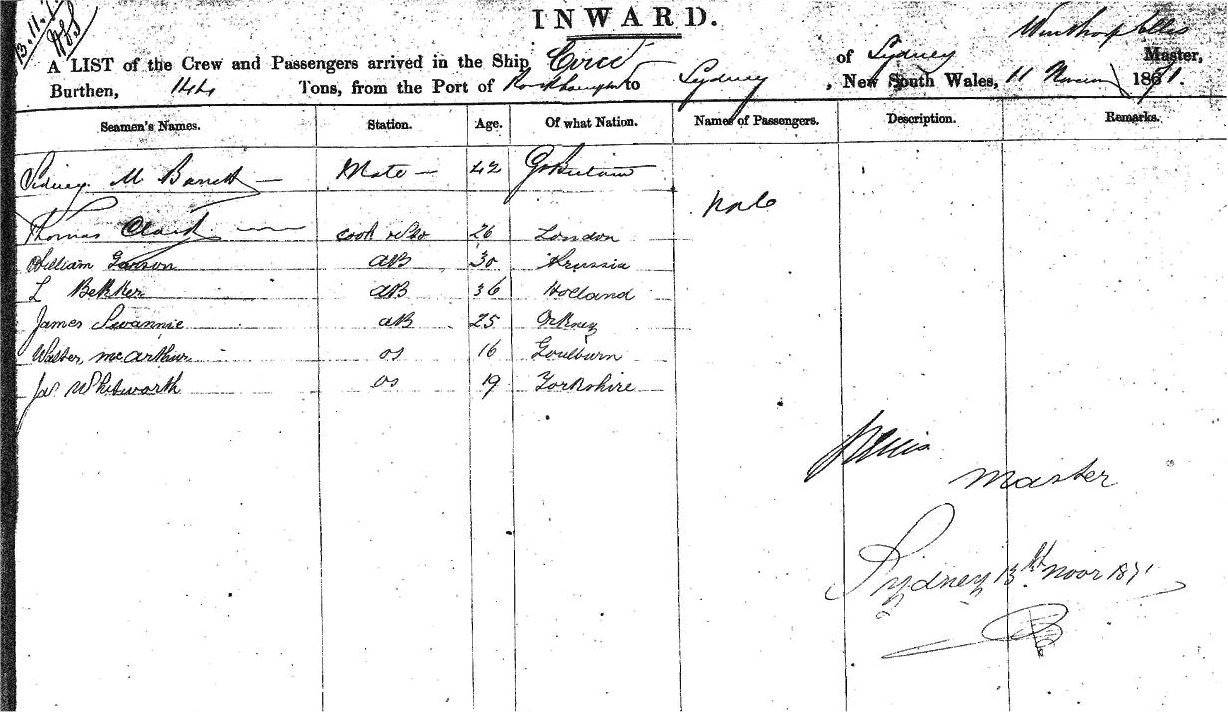 13.11.
INWARD.
Winthrop Ellis
A LIST of the Crew and Passengers arrived in the Ship of Sydney Master,
Burthen, 144 Tons, from the Port of to Sydney, New South Wales, 11 1871.
Seamen's Names. Station. Age. Of what Nation. Names of Passengers. Description. Remarks.
Sidney M Barrett Mate 42 Gt Britain
None
Thomas cook & 26 London
William 30 Prussia
L Bekker AB 36 Holland
James Swannie AB 25 Orkney
Walter McArthur OS 16 Goulburn
Jas Whitworth OS 19 Yorkshire
Ellis
Master
Sydney 13th Novr 1871